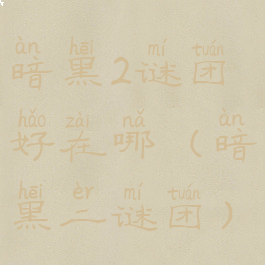 àn hēi mí tuán
暗黑2谜团
hǎo zài nǎ àn
好在哪（暗
hēi èr mí tuán
黑二谜团）